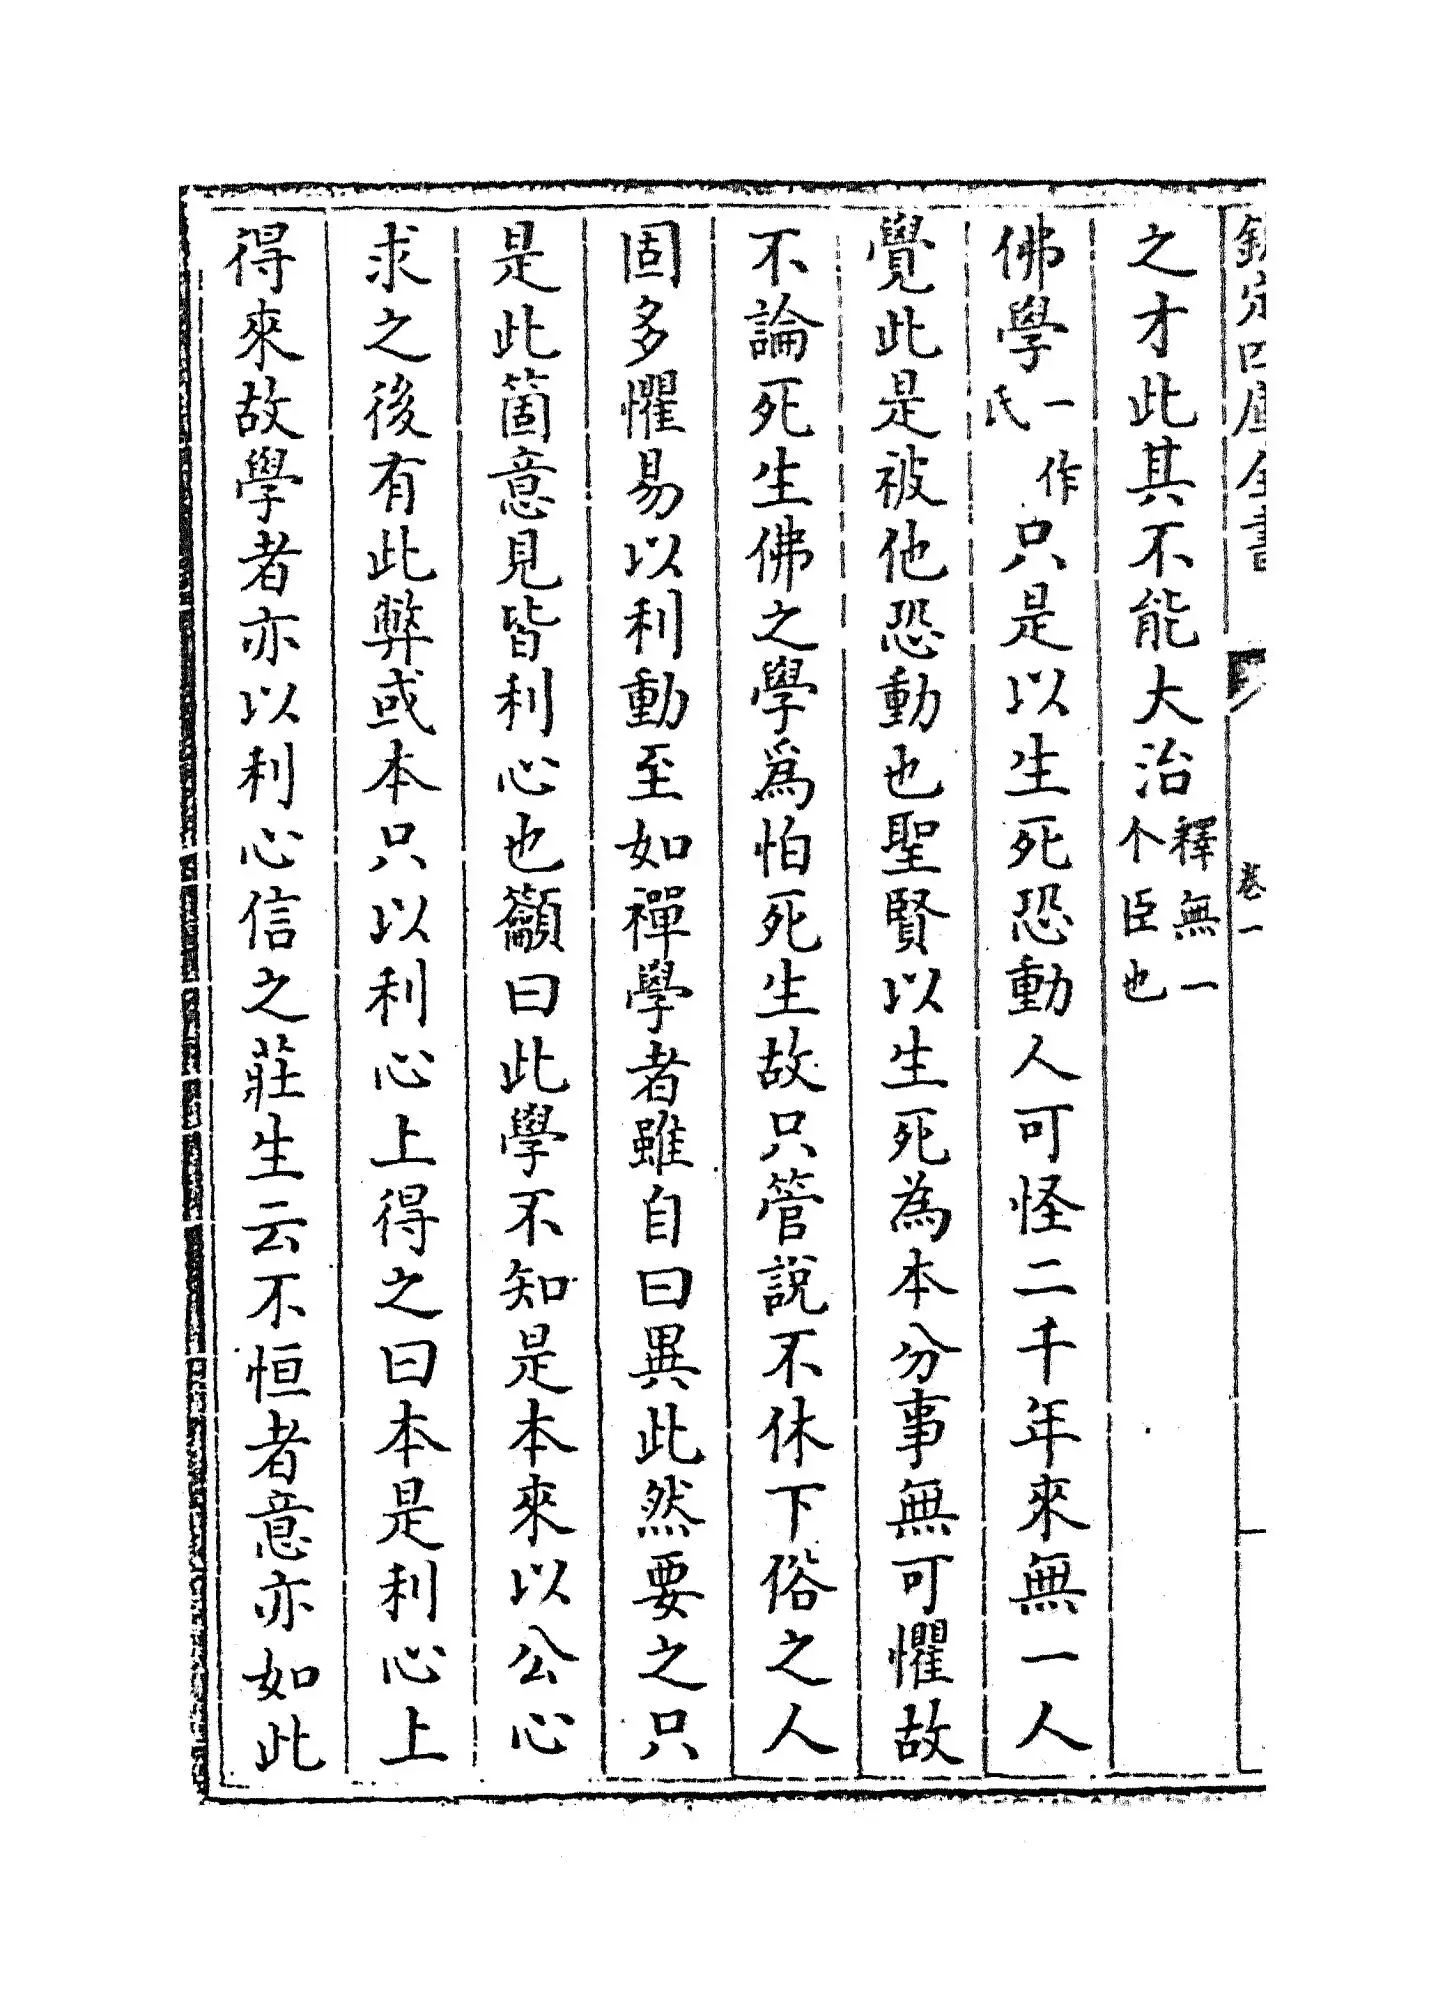 欽定四庫全書
卷一
之才此其不能大治釋無一个臣也
佛學一作氏只是以生死恐動人可怪二千年來無一人
覺此是被他恐動也聖賢以生死為本分事無可懼故
不論死生佛之學爲怕死生故只管說不休下俗之人
固多懼易以利動至如禪學者雖自曰異此然要之只
是此箇意見皆利心也籲曰此學不知是本來以公心
求之後有此弊或本只以利心上得之曰本是利心上
得來故學者亦以利心信之莊生云不恒者意亦如此